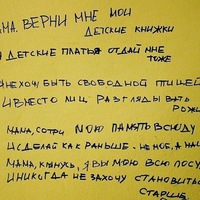 МА. ВЕРНИ МНЕ МОИ
ДЕТСКИЕ КНИЖКИ
И ДЕТСКИЕ ПЛАТЬЯ ОТДАЙ МНЕ
ТОЖЕ
НЕ ХОЧУ БЫТЬ СВОБОДНОЙ ПТИЦЕЙ
И ВМЕСТО ЛИЦ РАЗГЛЯДЫВАТЬ
РОЖИ
МАМА, СОТРИ МОЮ ПАМЯТЬ ВСЮДУ
И СДЕЛАЙ КАК РАНЬШЕ. НЕ НОЕ, А НАШ
МАМА, КЛЯНУСЬ, Я ВЫМОЮ ВСЮ ПОСУ
И НИКОГДА НЕ ЗАХОЧУ СТАНОВИТЬС
СТАРШЕ